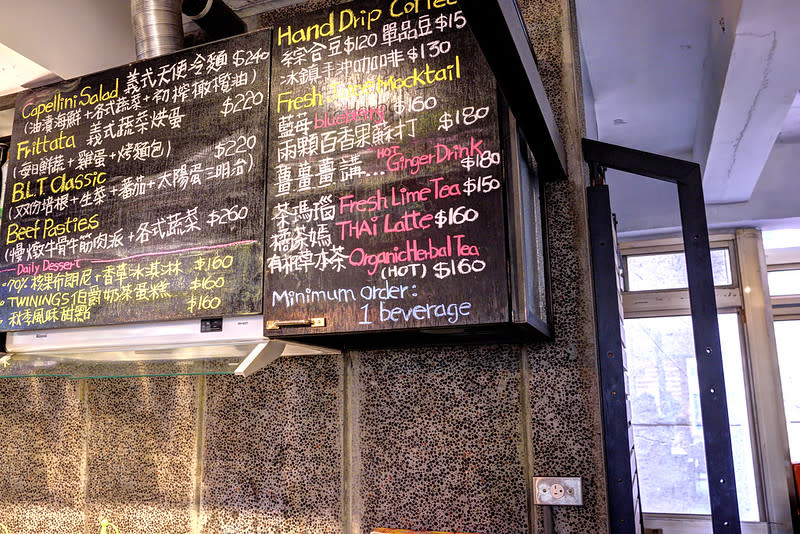 Capellini Salad 義式天使冷麵 $240
(油漬海鮮+各式蔬菜+初榨橄欖油)
Frittata 義式蔬菜烘蛋 $220
(每日鮮蔬+雞蛋+烤麵包)
B.L.T Classic $220
(双份培根+生菜+番茄+太陽蛋三明治)
Beef Pasties $260
(慢燉牛骨牛筋肉派+各式蔬菜
Daily Dessert
70% 核果布朗尼+香草冰淇淋 $160
TWININGS 伯爵奶茶蛋糕 $160
秋季風味甜點 $160
Hand Drip Coffee
綜合豆$120 單品豆$15
冰鎮手沖咖啡$130
Fresh Mocktail
藍莓 $160
兩顆百香果蘇打 $180
薑薑薑講... HOT Ginger Drink $180
茶瑪瑙 Fresh Lime Tea $150
橘茶媽 THAi Latte $160
有機草本茶 Organic Herbal Tea
(HOT) $160
Minimum order:
1 beverage